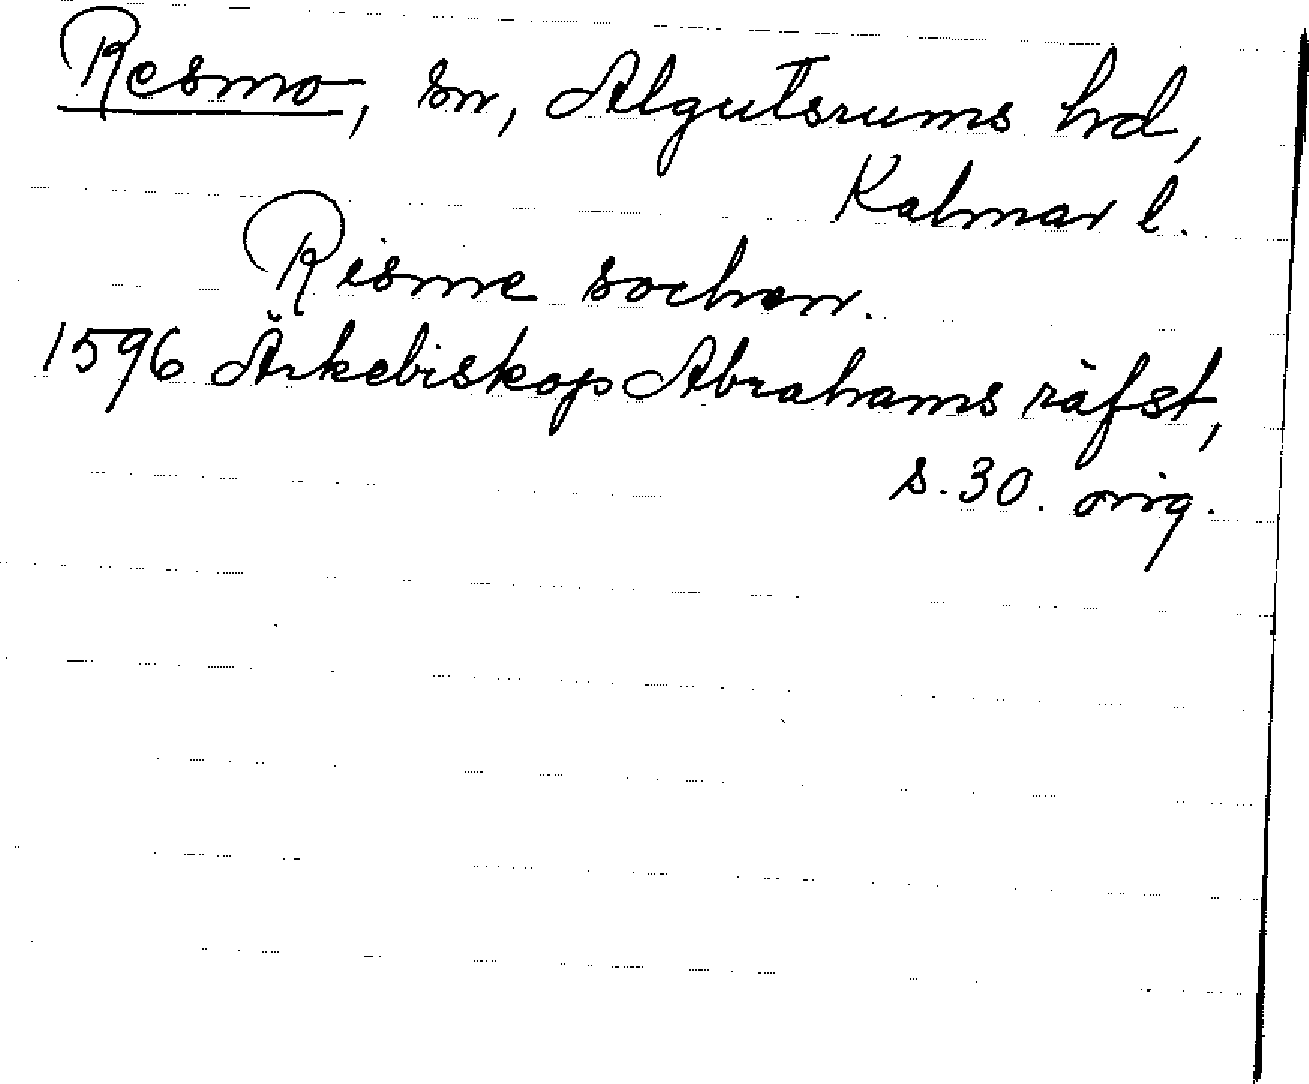 Resmo, sn, Algutsrums hd,
Kalmar l.
Risme sochen.
1596 Ärkebiskop Abrahams räfst,
s. 30. orig.